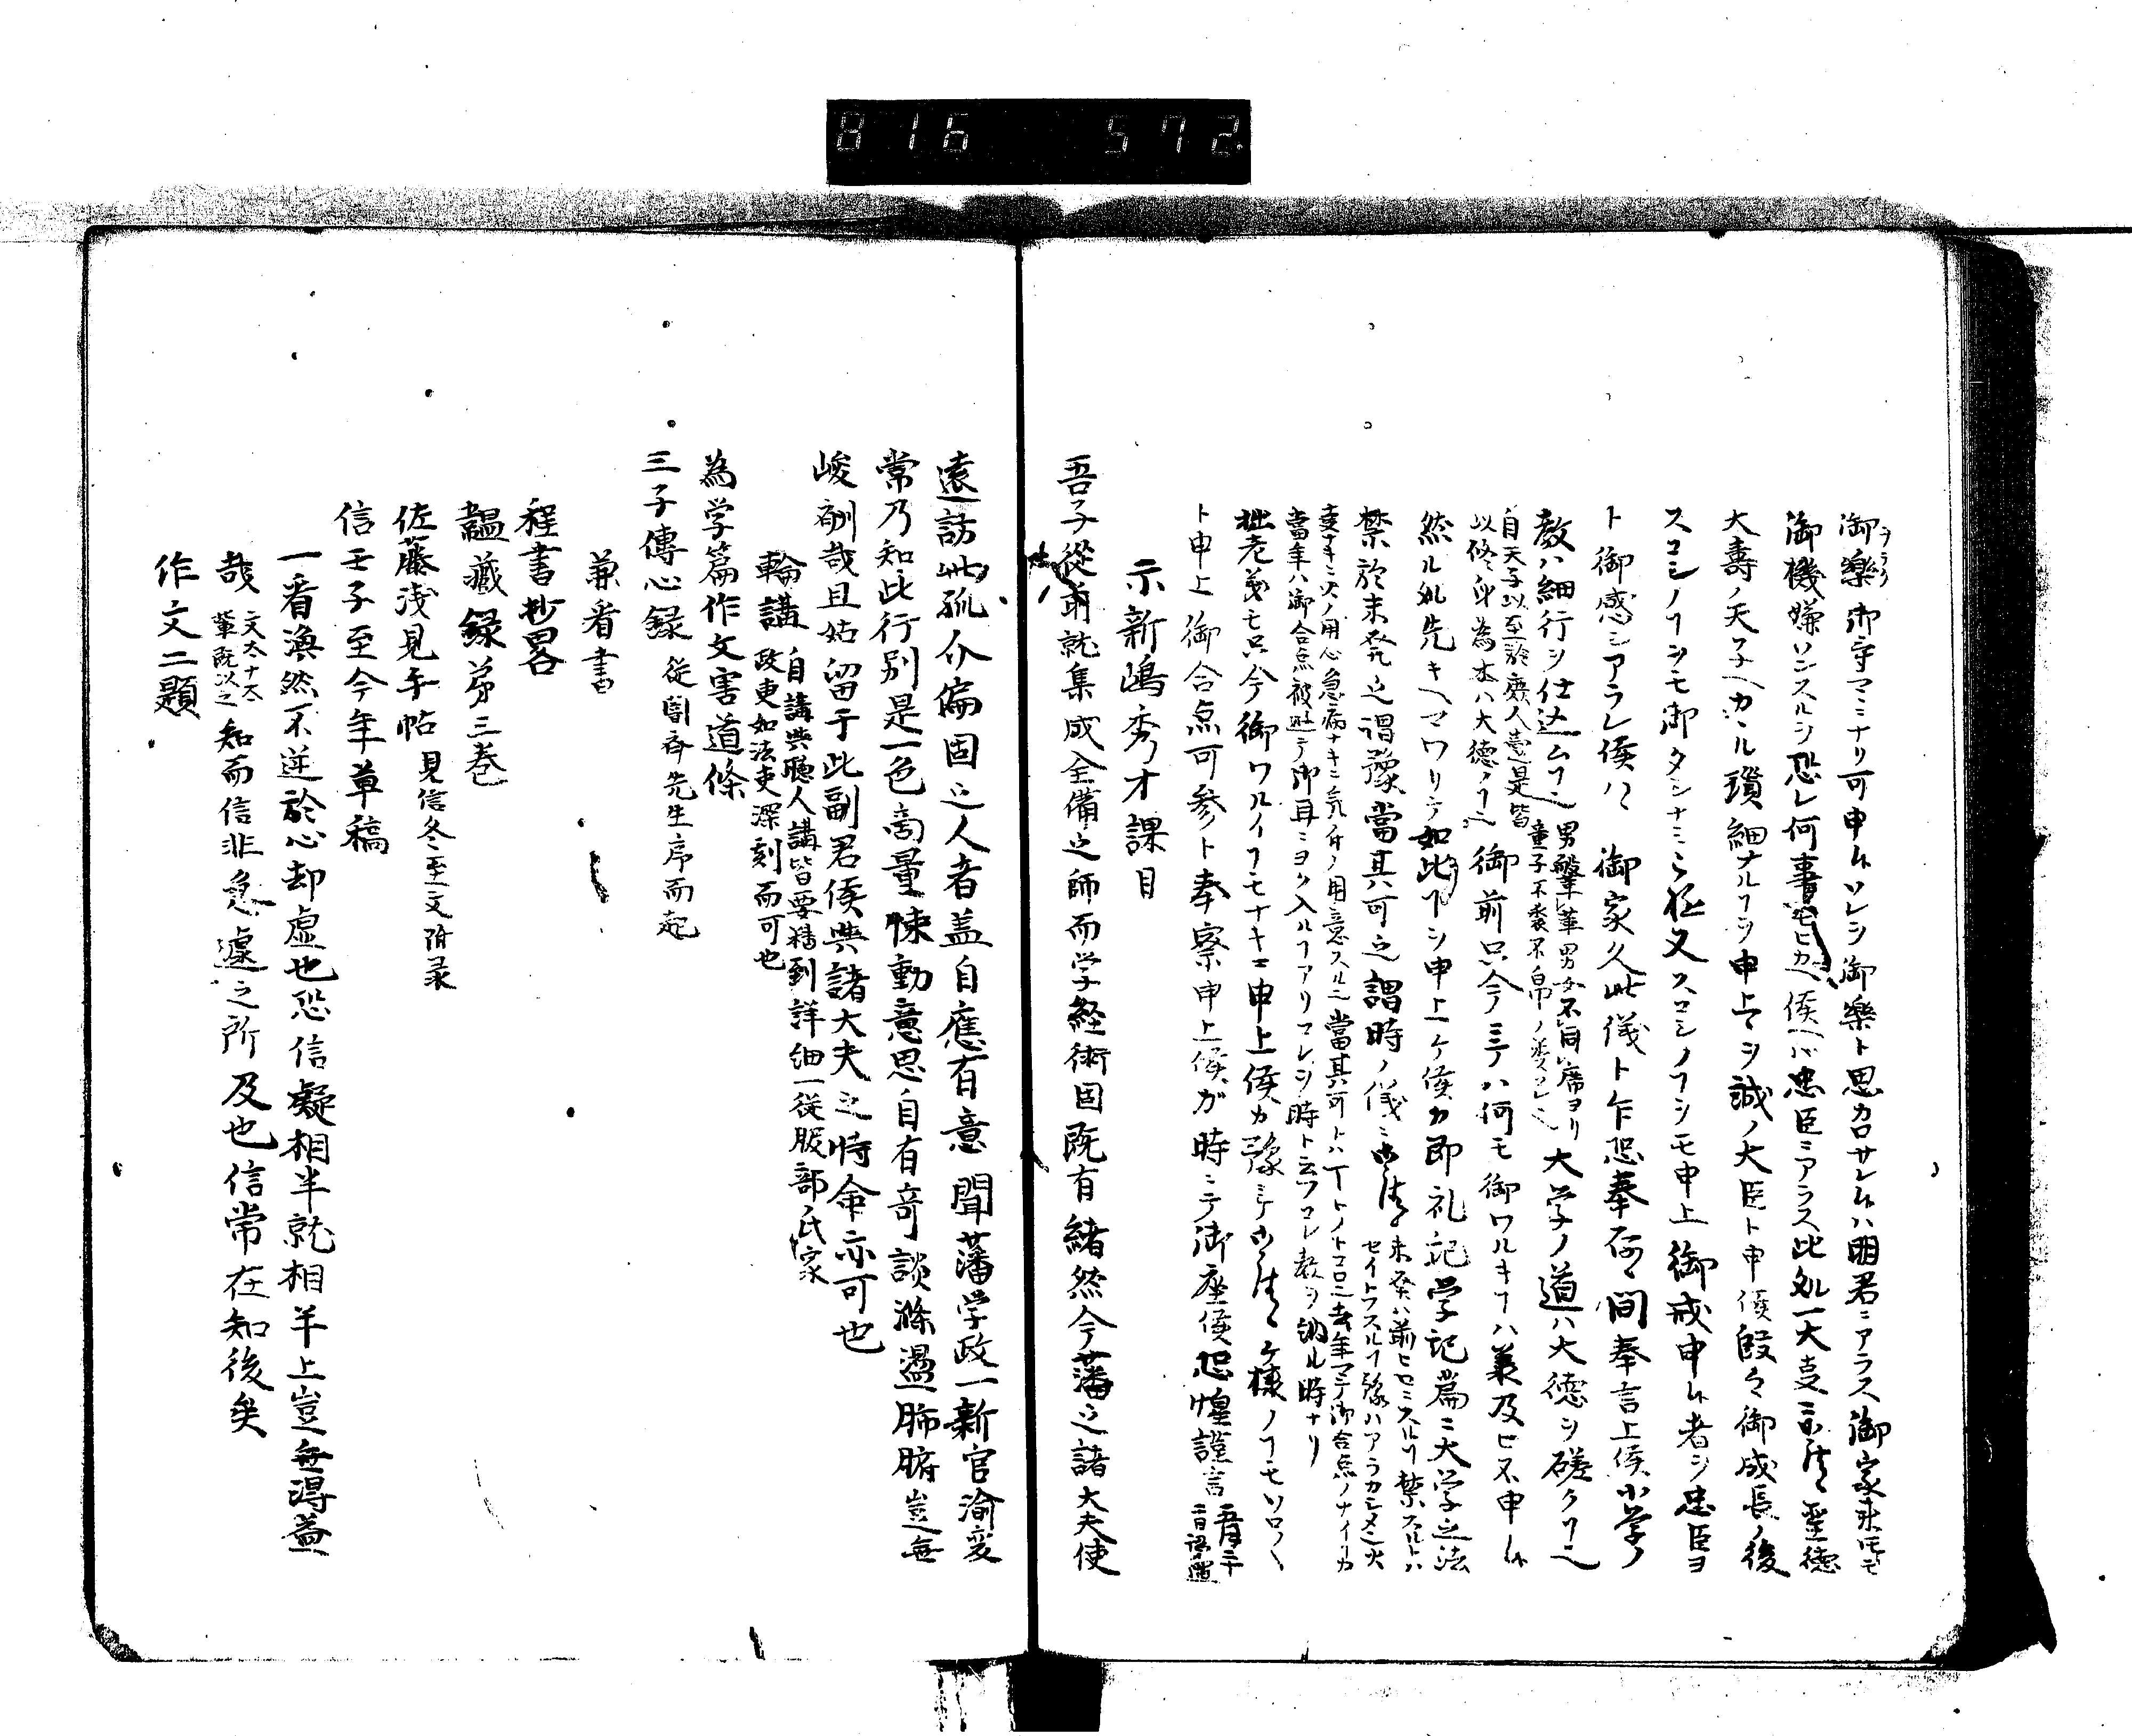 816 572
御樂御守マミナリ可申候ソレヲ御樂ト思カロサレ候ハ明君ミアラス御家来ニモ
ヲラク
御機嫌ソンスルヲ恐レ何事モヒカヘ候ヘバ忠臣ミアラス此処一大事 聖徳
大壽ノ天子ヘカヽル瑣細ナルヿヲ申上ヲ誠ノ大臣ト申候段々御成長ノ後
スコシノヿヲモ御タシナミ極又スコシノヿヲモ申上御戒申候者ヲ忠臣ヨ
ト御感シアラレ候ハヽ御家久此儀ト乍恐奉存間奉言上候小学ノ
教ハ細行ヲ仕込ムヿ也 男鞶革 男女不同席ヨリ
童子不裘不帛ノ
大学ノ道ハ大德ヲ磋クヿ也
自天子以至於庶人壹是皆
以修身為本ハ大德ノヿ也
御前只今ミテハ何モ御ワルキヿハ義及ヒ不申候
然ル処先キヘマワリテ如此ヿヲ申上ケ候カ即礼記学記篇ニ大学之法
禁於未発之謂豫當其可之謂時ノ儀ミ
未発ハ前ヒセミスルヿ禁スルトハ
セイトウスルヿ豫ハアラカシメ也火
事ナキミ火ノ用心急病ナキミ氣ノ用意スル也當其可トハ丁トノトコロ也去年マデ御合点ノナイヿカ
當年ハ御合点被遊テ御耳ミヨク入ルヿアリコレヲ時ト云フコレ教ヲ納ル時ナリ
拙老義モ只今御ワルイヿモナキニ申上候カ豫ミテ ケ様ノヿモソロソロ
ト申上御合点可参ト奉察申上候ガ時ミテ御座候恐惶謹言
示新嶋秀才課目
吾子從南就集成全備之師而学経術固既有緒然今藩之諸大夫使
遠訪此孤介偏固之人者盖自應有意聞藩学政一新官渝変
常乃知此行別是一色商量悚動意思自有奇談滌盪肺腑豈無
峻酬哉且姑留于此副君侯與諸大夫之特命亦可也
輪講 自講與聴人講皆要精到詳細一従服部氏家
政吏如法吏深刻而可也
為学篇作文害道條
三子傳心録 従闇斉先生序而起
兼看書
程書抄畧
韞藏録第三巻
佐藤浅見手帖 見信冬至文附录
信壬子至今年草稿
一看渙然不逆於心却虛也恐信疑相半就相半上豈無得益
哉 文太十太
輩既以之
知而信非急遽之所及也信常在知後矣
作文二題